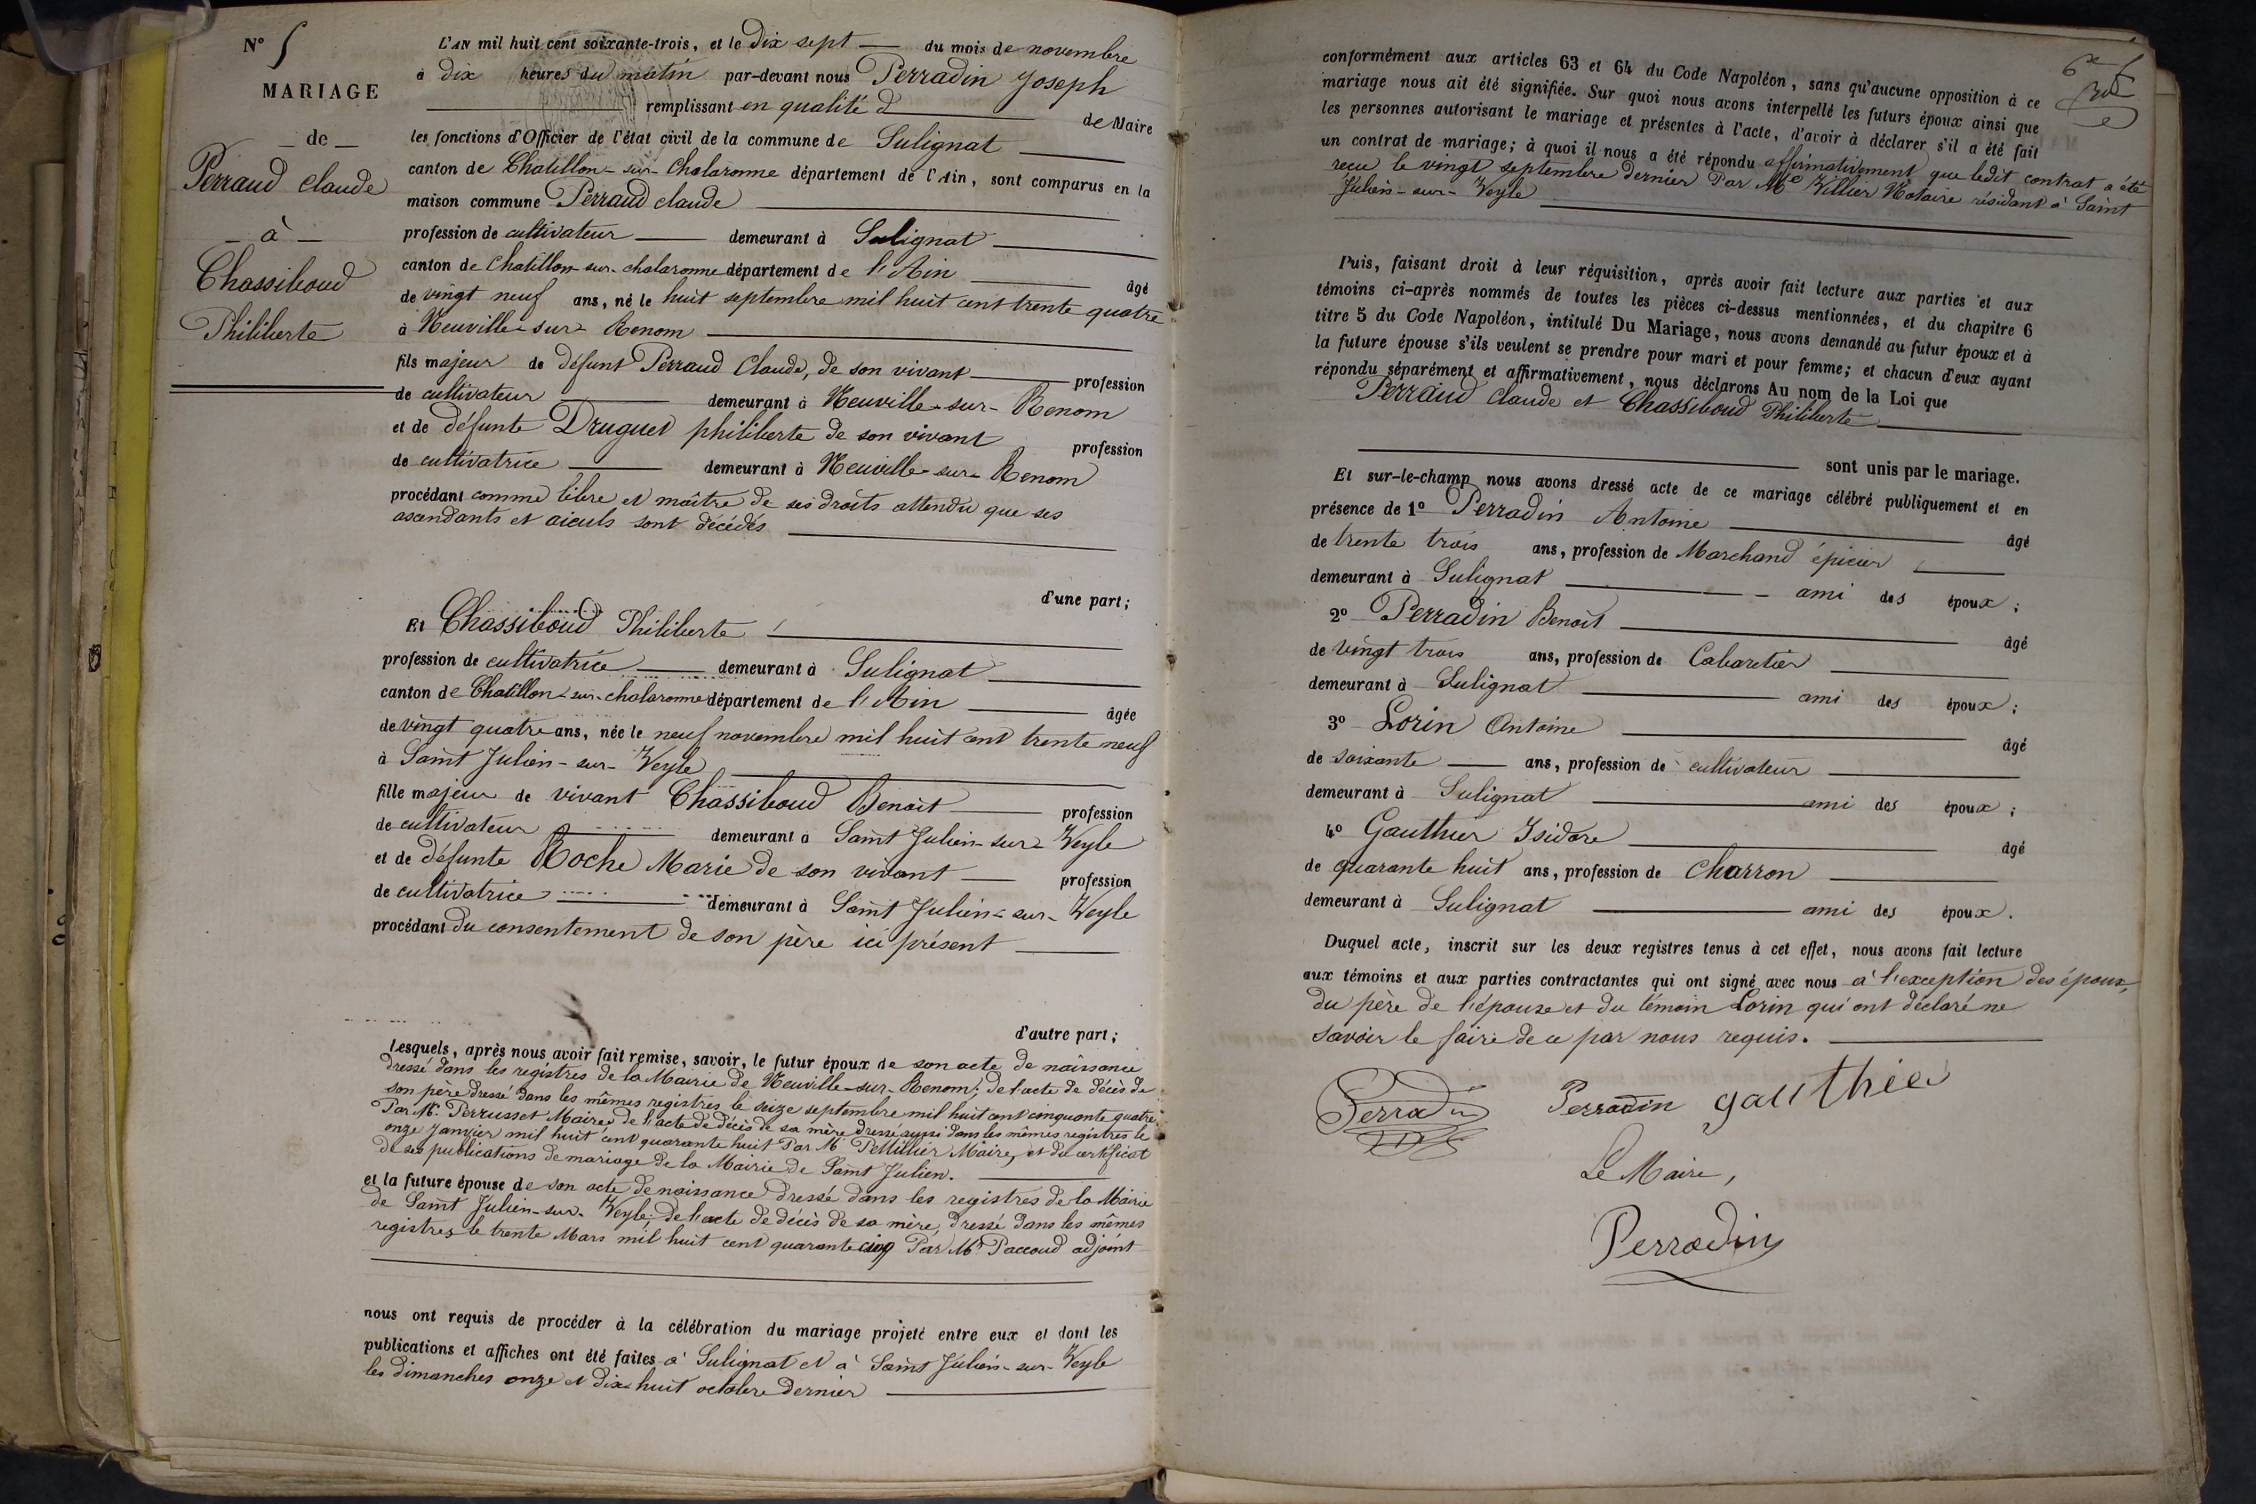 N° 5
MARIAGE
de
Perraud Claude
à
Chassiboud
Philiberte
L'AN mil huit cent soixante-trois, et le Dix sept du mois de novembre
à dix heures du matin par-devant nous Perradin Joseph
remplissant en qualité d de Maire
les fonctions d'Officier de l'état civil de la commune de Sulignat
canton de Chatillon-sur-Chalaronne département de l'Ain, sont comparus en la
maison commune Perraud claude
profession de cultivateur demeurant à Sulignat
canton de Chatillon-sur-chalaronne département de l'Ain âgé
de vingt neuf ans, né le huit septembre mil huit cent trente quatre
à Neuville-sur-Renom
fils majeur de défunt Perraud Claude, de son vivant profession
de cultivateur demeurant à Neuville-sur-Renom
et de défunte Druguet philiberte de son vivant profession
de cultivatrice demeurant à Neuville-sur-Renom
procédant comme libre et maître de ses droits attendu que ses
ascendants et aieuls sont décédés
d'une part;
Et Chassiboud Philiberte
profession de cultivatrice demeurant à Sulignat
canton de Chatillon-sur-chalaronne département de l'Ain âgée
de vingt quatre ans, née le neuf novembre mil huit cent trente neuf
à Saint Julien-sur-Veyle
fille majeur de vivant Chassiboud Benoit profession
de cultivateur demeurant à Saint Julien-sur-Veyle
et de défunte Roche Marie de son vivant profession
de cultivatrice demeurant à Saint Julien-sur-Veyle
procédant du consentement de son père ici présent
d'autre part;
Lesquels, après nous avoir fait remise, savoir, le futur époux de son acte de naissance
dressé dans les registres de la Mairie de Neuville-sur-Renom; de l'acte de décès de
son père dressé dans les mêmes registres le seize septembre mil huit cent cinquante quatre
Par Mr. Perrusset Maire, de l'acte de décès de sa mère dressé aussi dans les mêmes registres le
onze Janvier mil huit cent quarante huit Par Mr Pellillier Maire, et du certificat
de ses publications de mariage de la Mairie de Saint Julien.
et la future épouse de son acte de naissance dressé dans les registres de la Mairie
de Saint Julien-sur-Veyle; de l'acte de décès de sa mère, dressé dans les mêmes
registres, le trente Mars mil huit cent quarante cinq Par Mr Paccoud adjoint
nous ont requis de procéder à la célébration du mariage projeté entre eux et dont les
publications et affiches ont été faites à Sulignat et à Saint Julien-sur-Veyle
les dimanches onze et dix-huit octobre dernier
conformément aux articles 63 et 64 du Code Napoléon, sans qu'aucune opposition à ce
mariage nous ait été signifiée. Sur quoi nous avons interpellé les futurs époux ainsi que
les personnes autorisant le mariage et présentes à l'acte, d'avoir à déclarer s'il a été fait
un contrat de mariage; à quoi il nous a été répondu affirmativement que ledit contrat a été
reçu le vingt septembre dernier Par Me Villier Notaire résidant à Saint
Julien-sur-Veyle
Puis, faisant droit à leur réquisition, après avoir fait lecture aux parties et aux
témoins ci-après nommés de toutes les pièces ci-dessus mentionnées, et du chapitre 6
titre 5 du Code Napoléon, intitulé Du Mariage, nous avons demandé au futur époux et à
la future épouse s'ils veulent se prendre pour mari et pour femme; et chacun d'eux ayant
répondu séparément et affirmativement, nous déclarons Au nom de la Loi que
Perraud Claude et Chassiboud Philiberte
sont unis par le mariage.
Et sur-le-champ nous avons dressé acte de ce mariage célébré publiquement et en
présence de 1° Perradin Antoine âgé
de trente trois ans, profession de Marchand épicier
demeurant à Sulignat ami des époux;
2° Perradin Benoît âgé
de vingt trois ans, profession de Cabaretier
demeurant à Sulignat ami des époux;
3° Lorin Antoine âgé
de soixante ans, profession de cultivateur
demeurant à Sulignat ami des époux;
4° Gauthier Isidore âgé
de quarante huit ans, profession de Charron
demeurant à Sulignat ami des époux.
Duquel acte, inscrit sur les deux registres tenus à cet effet, nous avons fait lecture
aux témoins et aux parties contractantes qui ont signé avec nous à l'exception des époux,
du père de l'épouse et du témoin Lorin qui ont déclaré ne
savoir le faire de ce par nous requis.
Perradin Perradin gauthier
Le Maire,
Perradin